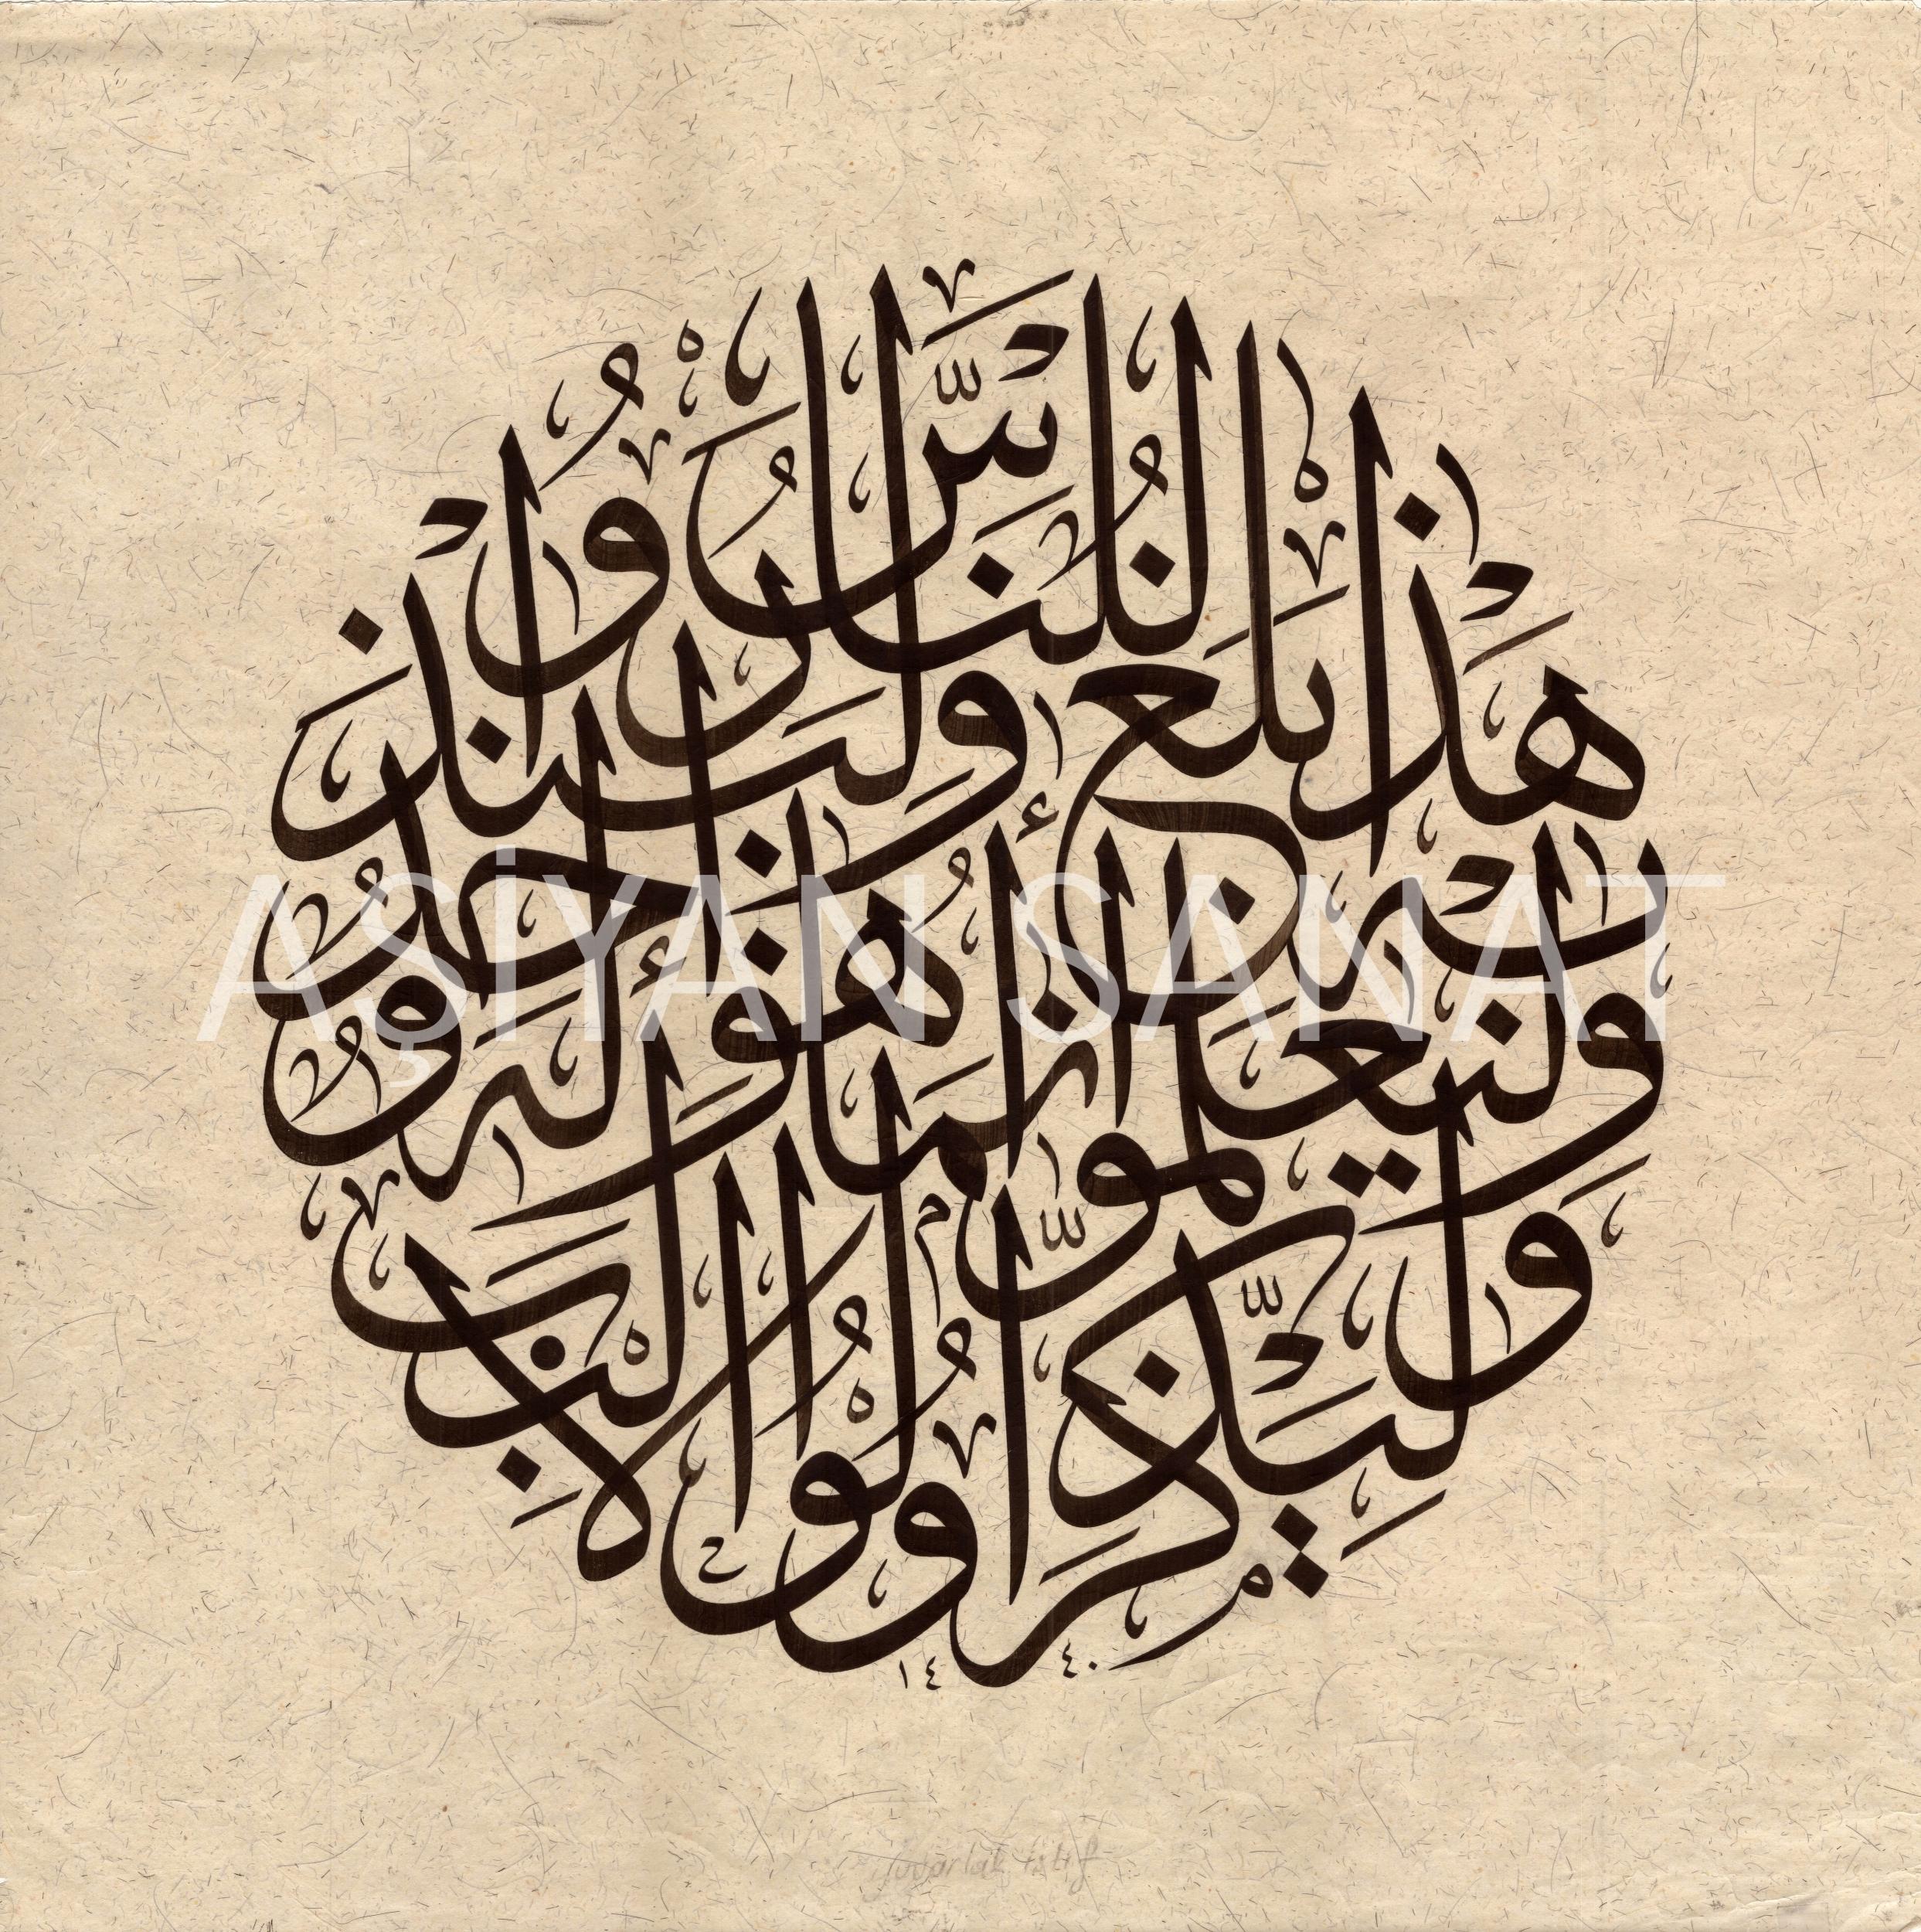 هٰذَا بَلَاغٌ لِلنَّاسِ وَلِيُنْذَرُوا
بِهِ وَلِيَعْلَمُوا أَنَّمَا هُوَ إِلٰهٌ وَاحِدٌ
وَلِيَذَّكَّرَ أُولُوا الْأَلْبَابِ
١٤٤٠
AŞİYAN SANAT
Yuvarlak istif